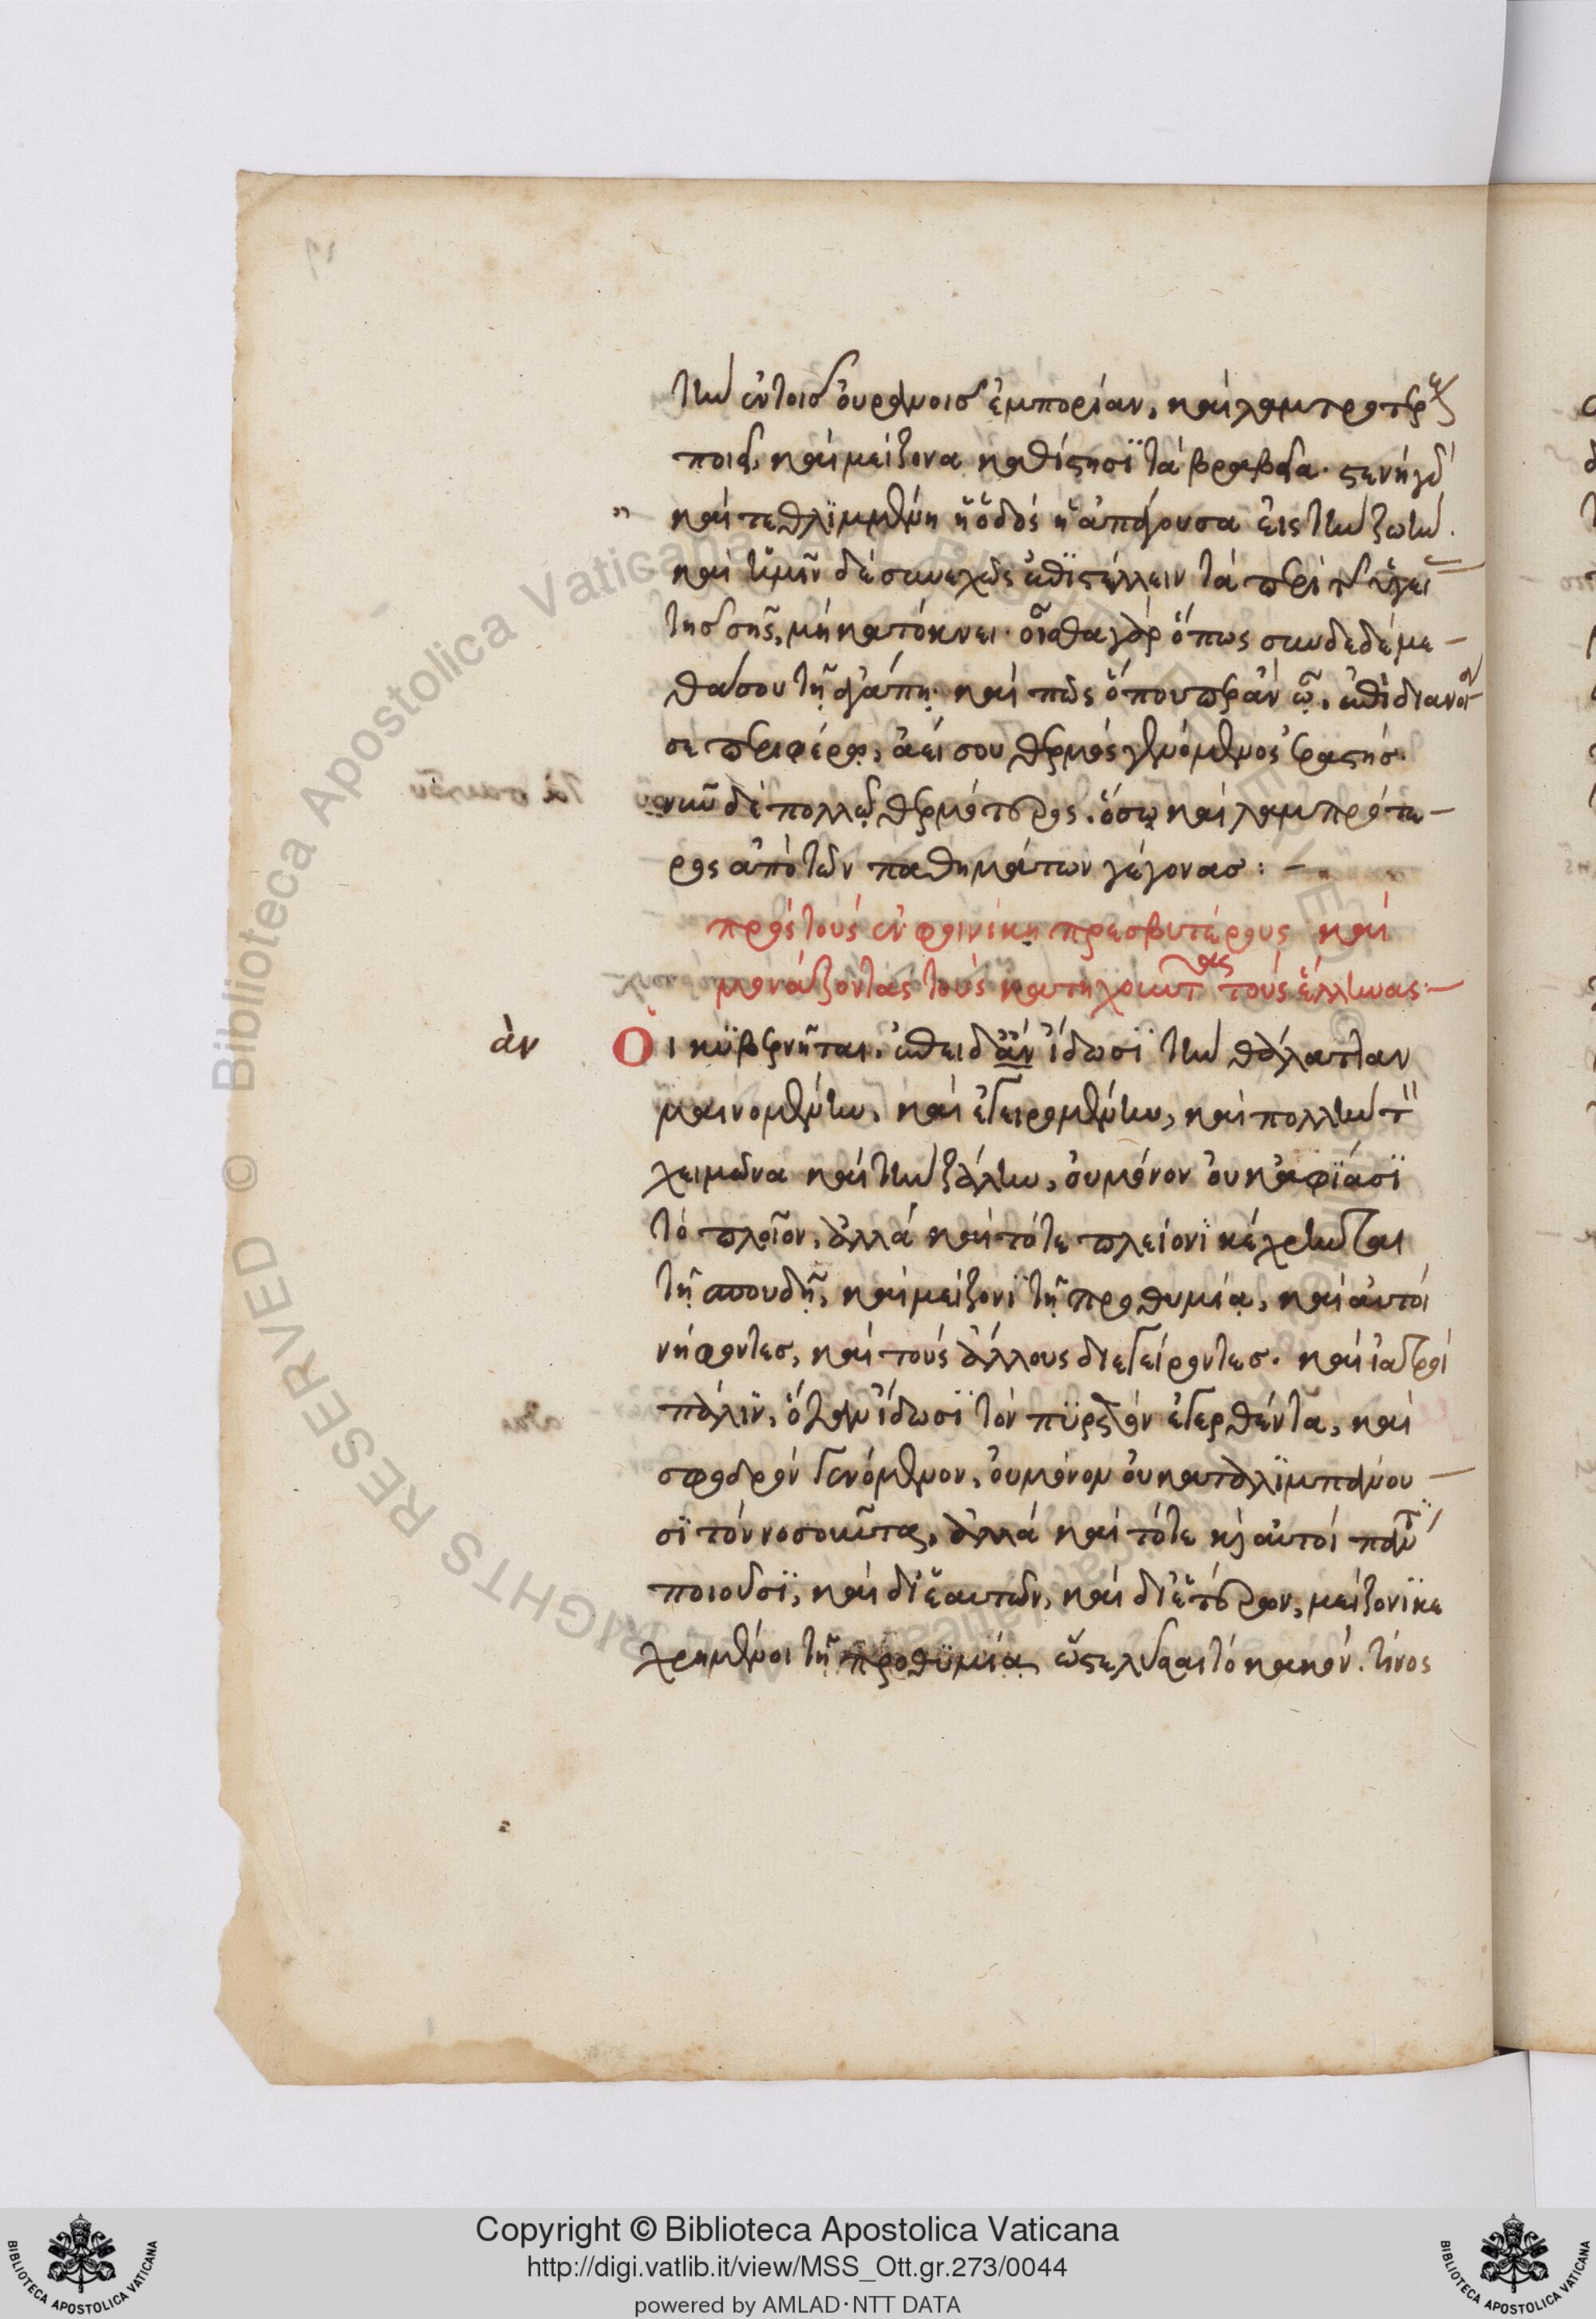 τὴν ἐν τοῖς οὐρανοῖς ἐμπορίαν, καὶ λαμπροτέρους
ποιεῖ, καὶ μείζονα καθίστησι τὰ βραβεῖα. στενὴ γὰρ
" καὶ τεθλιμμένη ἡ ὁδὸς ἡ ἀπάγουσα εἰς τὴν ζωήν.
καὶ ἡμῖν δὲ συνεχῶς ἐπιστέλλειν τὰ περὶ τῆς ὑγείας
τῆς σῆς, μὴ κατόκνει. οἶσθα γὰρ ὅπως συνδεδέμε-
θά σου τῇ ἀγάπῃ. καὶ πῶς ὅπουπερ ἂν ὦ, ἐπὶ διανοίας
σὲ περιφέρω, ἀεί σου θερμὸς γενόμενος ἐραστής.
νῦν δὲ πολλῷ θερμότερος. ὅσῳ καὶ λαμπρότε-
ρος ἀπὸ τῶν παθημάτων γέγονας: -
πρὸς τοὺς ἐν φοινίκῃ πρεσβυτέρους καὶ
μονάζοντας τοὺς κατηχοῦντας τοὺς ἕλληνας: -
ὰν
Οἱ κυβερνῆται. ἐπειδὰν ἴδωσι τὴν θάλατταν
μαινομένην, καὶ ἐγειρομένην, καὶ πολλὴν τὸν
χειμῶνα καὶ τὴν ζάλην, οὐ μόνον οὐκ ἀφιᾶσι
τὸ πλοῖον, ἀλλὰ καὶ τότε πλείονι κέχρηνται
τῇ σπουδῇ, καὶ μείζονι τῇ προθυμίᾳ, καὶ αὐτοὶ
νήφοντες, καὶ τοὺς ἄλλους διεγείροντες. καὶ ἰατροὶ
πάλιν, ὅταν ἴδωσι τὸν πυρετὸν ἐγερθέντα, καὶ
σφοδρὸν γενόμενον, οὐ μόνον οὐ καταλιμπάνου-
σι τὸν νοσοῦντα, ἀλλὰ καὶ τότε κ αὐτοὶ πάντα
ποιοῦσι, καὶ δι' ἑαυτῶν, καὶ δι' ἑτέρων, μείζονι κε
χρημένοι τῇ προθυμίᾳ ὥστε λῦσαι τὸ κακόν. τίνος
Copyright © Biblioteca Apostolica Vaticana
http://digi.vatlib.it/view/MSS_Ott.gr.273/0044
powered by AMLAD·NTT DATA
BIBLIOTECA APOSTOLICA VATICANA
BIBLIOTECA APOSTOLICA VATICANA